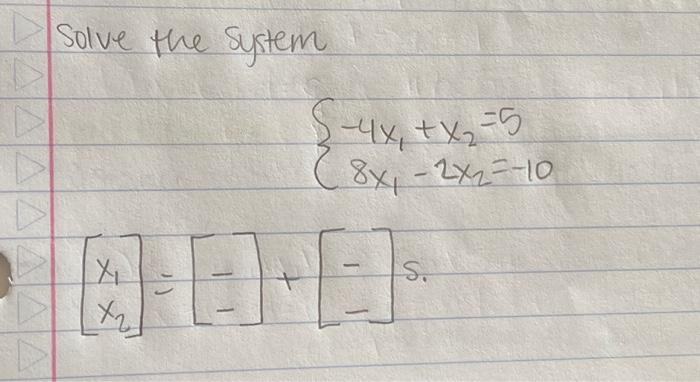 Solve the System
{-4x₁ + x₂ = 5
{8x₁ - 2x₂ = -10
[x₁ x₂] = [_ _] + [_ _] s.